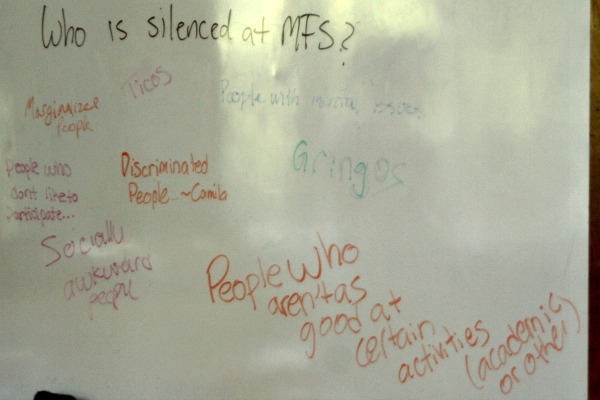 Who is silenced at MFS?
Ticos
Marginalized
People
People with mental issues
People who
dont like to
participate...
Discriminated
People ~Camila
Gringos
Socially
awkward
people
People who
aren't as
good at
certain
activities
(academic
or other)